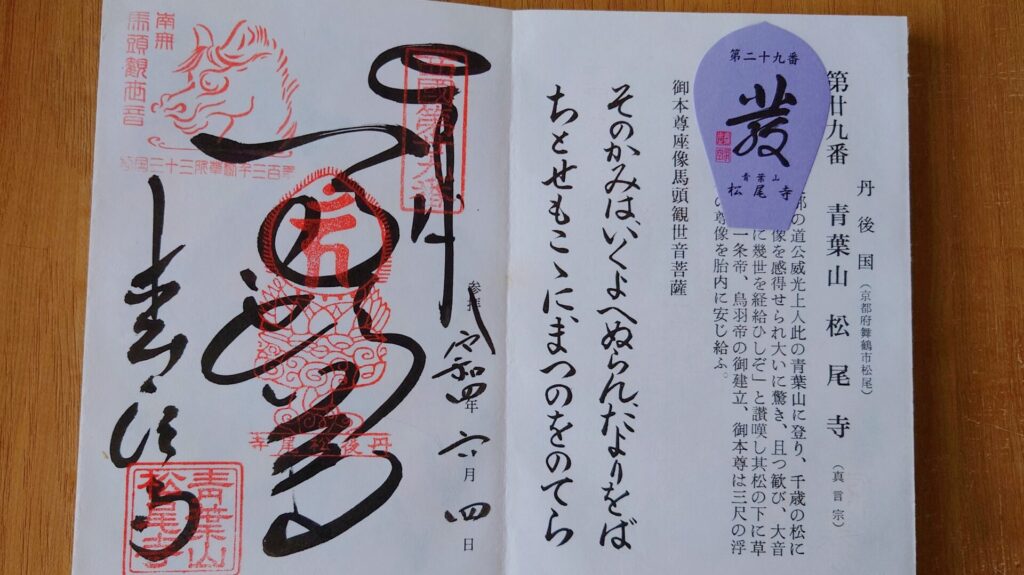 第廿九番 丹後国（京都府舞鶴市松尾） 青葉山 松尾寺（真言宗）
第二十九番
發
青葉山
松尾寺
の道公威光上人此の青葉山に登り、千歳の松に
像を感得せられ大いに驚き、且つ歓び、大音
に幾世を経給ひしぞ」と讃嘆し其松の下に草
一条帝、鳥羽帝の御建立、御本尊は三尺の浮
の尊像を胎内に安じ給ふ。
御本尊座像馬頭観世音菩薩
そのかみは、いくよへぬらん、たよりをば
ちとせもこゝに、まつのをのてら
参拝 令和四年 六月 四日
西国第廿九番
丹後松尾寺
南無
馬頭観世音
青葉山
松尾寺